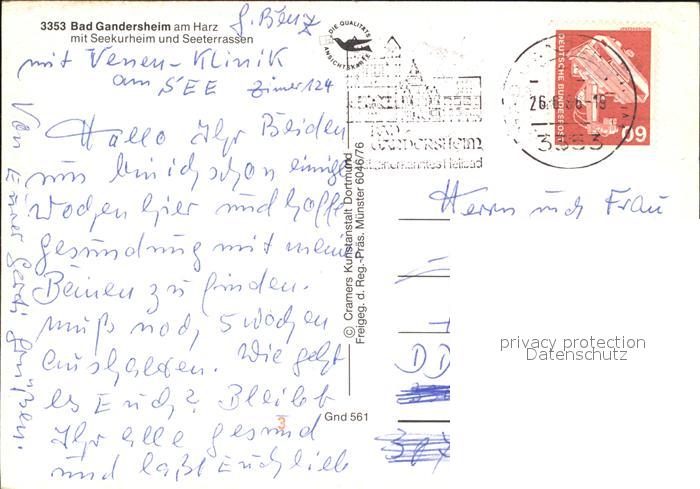 3353 Bad Gandersheim am Harz
mit Seekurheim und Seeterrassen
G. Benz
mit Venen-Klinik
am SEE Zimer 124
Hallo Ihr Beiden
nun bin ich schon einige
Wochen hier und hoffe
gesundung mit meine
Beinen zu finden.
muß noch 5 wochen
aushalten. Wie geht
es Euch? Bleibt
Ihr alle gesund
und laßt Euch lieb
Von Eurer Gerdi
DIE QUALITÄTS
ANSICHTSKARTE
© Cramers Kunstanstalt Dortmund
Freigeg. d. Reg.-Präs. Münster 6046/76
Gnd 561
3
BAD
GANDERSHEIM
Heilbad
26.6.86-18
3353
DEUTSCHE BUNDESPOST
60
Herrn und Frau
privacy protection
Datenschutz